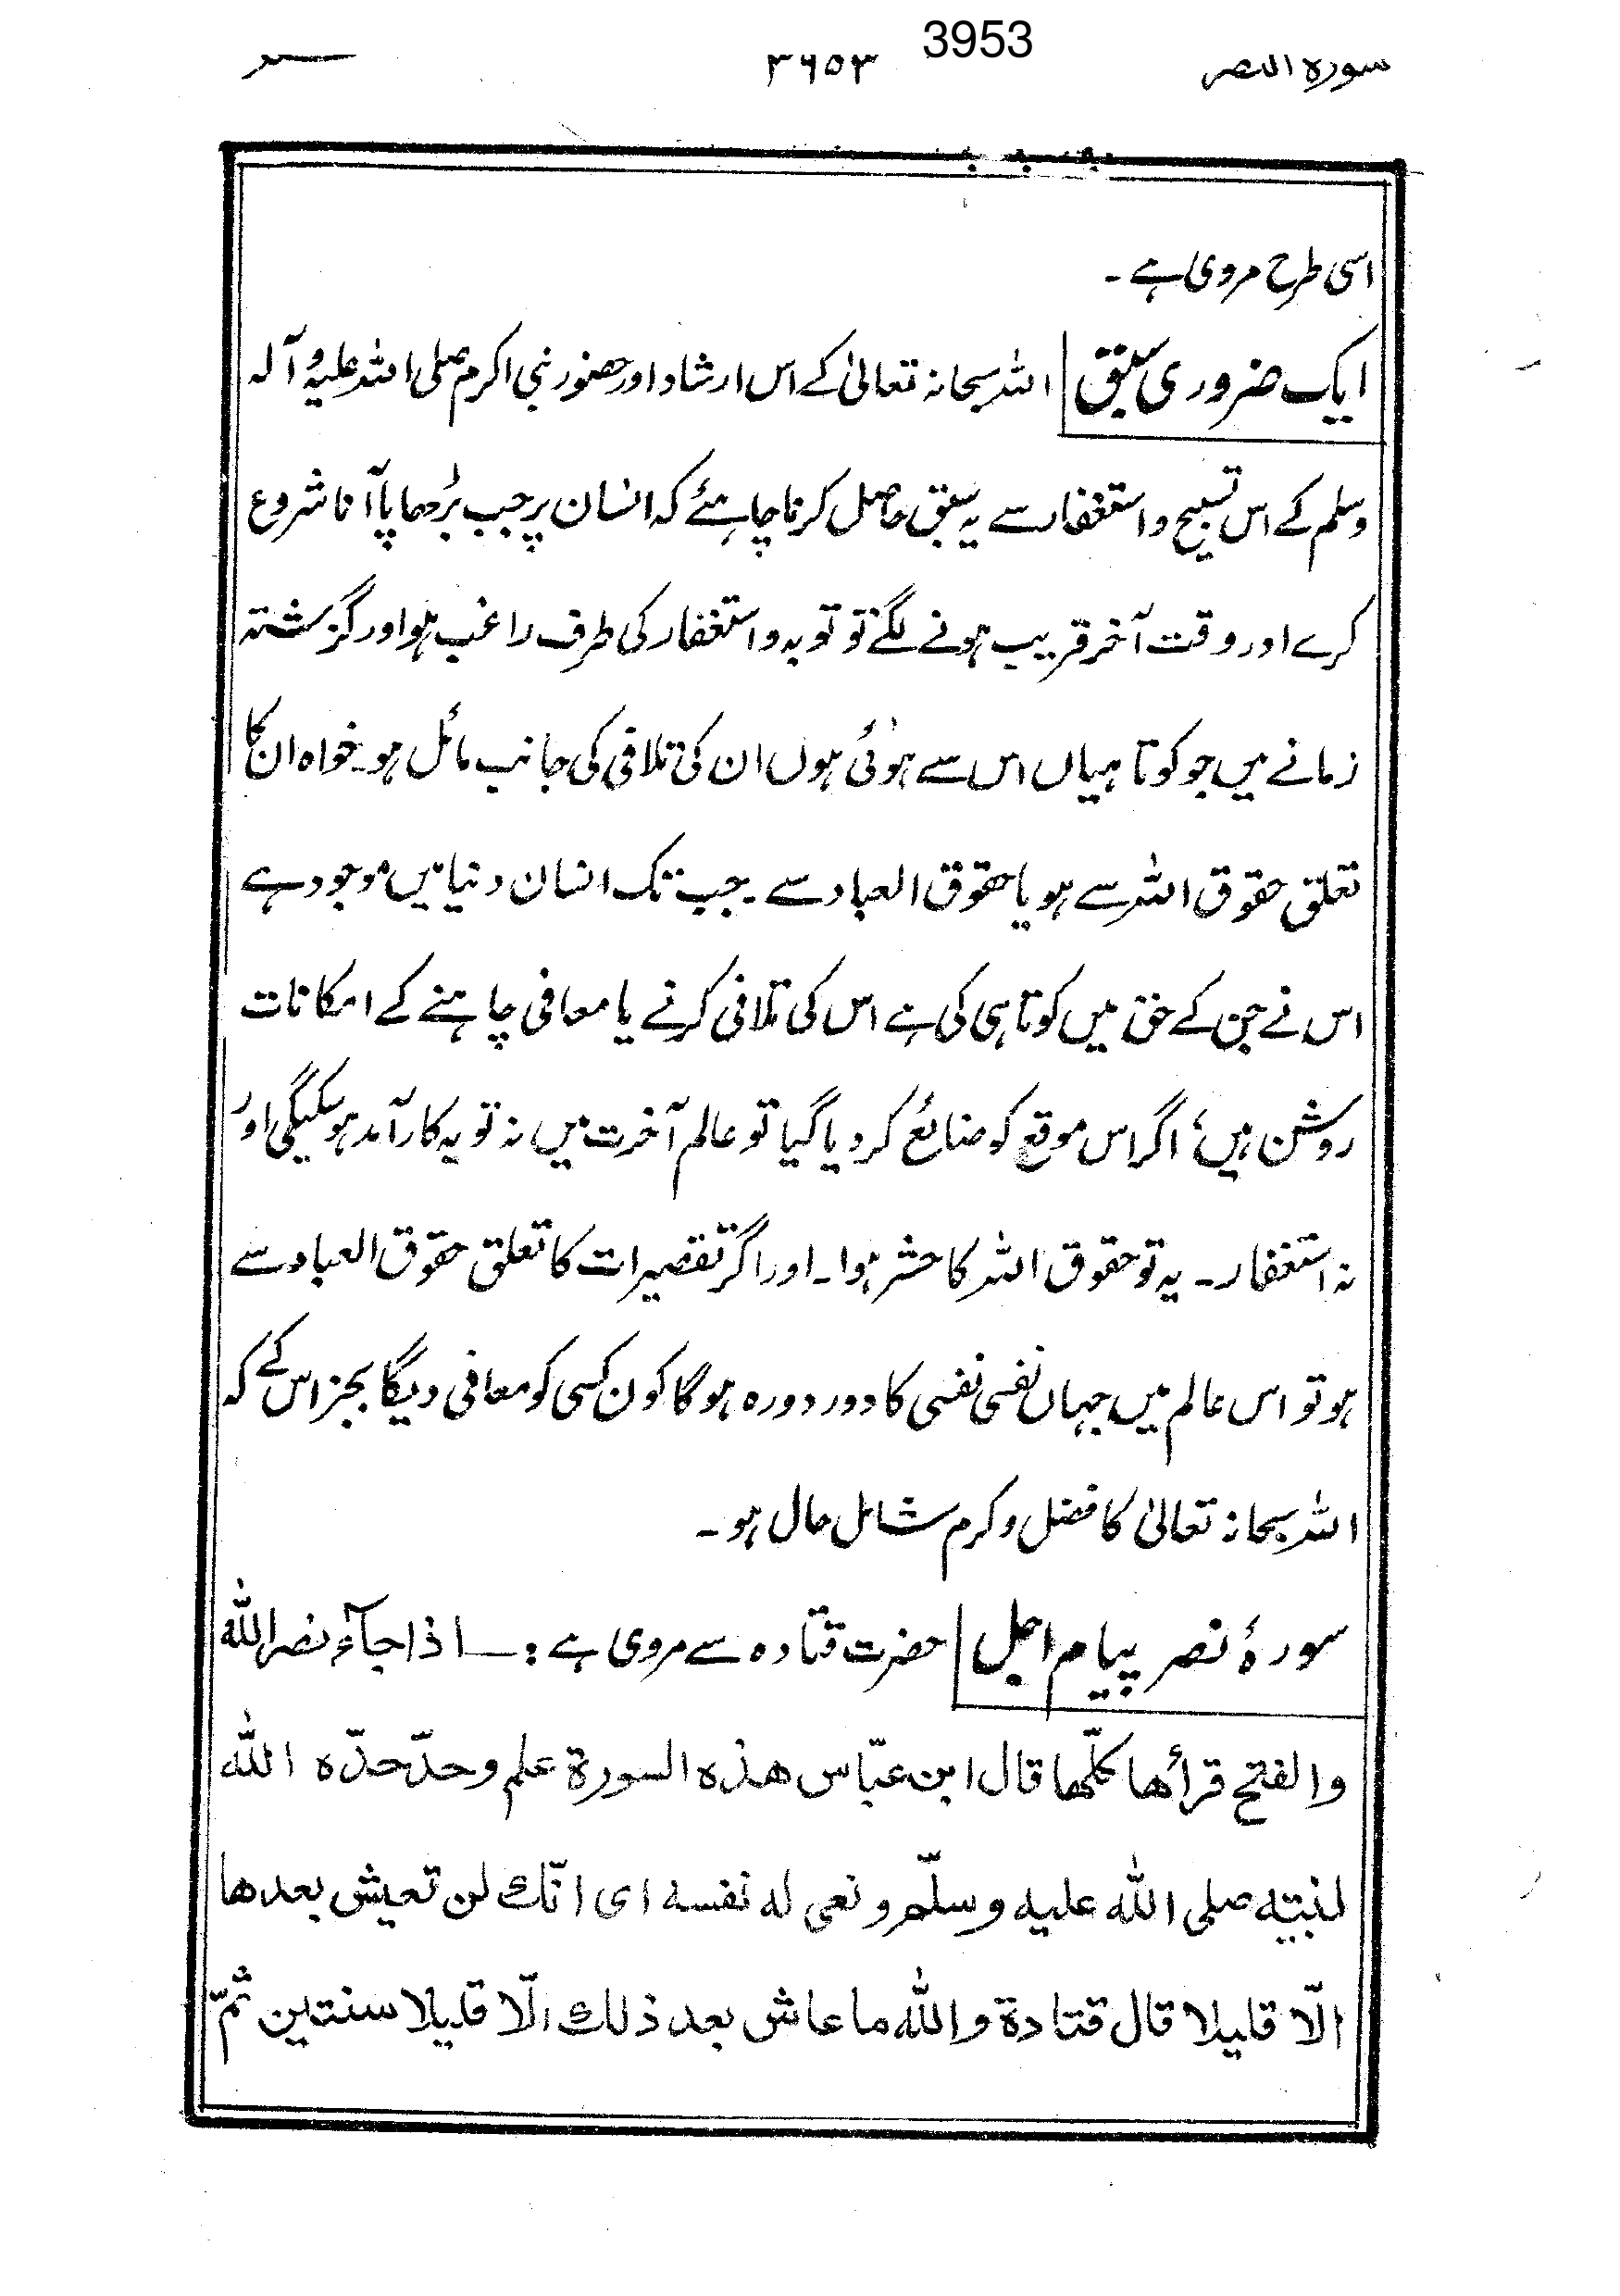 3953
سورہ النصر ۳۹۵۳
اسی طرح مروی ہے ۔
ایک ضروری سبق اللہ سبحانہ تعالیٰ کے اس ارشاد اور حضور نبی اکرم صلی اللہ علیہ و آلہ
وسلم کے اس تسبیح و استغفار سے یہ سبق حاصل کرنا چاہئے کہ انسان پر جب بڑھاپا آنا شروع
کرے اور وقت آخر قریب ہونے لگے تو توبہ و استغفار کی طرف راغب ہو اور گزشتہ
زمانے میں جو کوتاہیاں اس سے ہوئی ہوں ان کی تلافی کی جانب مائل ہو۔ خواہ ان کا
تعلق حقوق اللہ سے ہو یا حقوق العباد سے ۔ جب تک انسان دنیا میں موجود ہے
اس نے جن کے حق میں کوتاہی کی ہے اس کی تلافی کرنے یا معافی چاہنے کے امکانات
روشن ہیں، اگر اس موقع کو ضائع کر دیا گیا تو عالم آخرت میں نہ توبہ کار آمد ہو سکیگی اور
نہ استغفار ۔ یہ تو حقوق اللہ کا حشر ہوا ۔ اور اگر تقصیرات کا تعلق حقوق العباد سے
ہو تو اس عالم میں جہاں نفسی نفسی کا دور دورہ ہو گا کون کسی کو معافی دیگا بجز اس کے کہ
اللہ سبحانہ تعالیٰ کا فضل و کرم شامل حال ہو ۔
سورۂ نصر پیام اجل حضرت قتادہ سے مروی ہے :ـــ اذا جآء نصر اللّٰه
والفتح قرأها كلّها قال ابن عبّاس هذه السورة علم وحدّ حدّه اللّٰه
لنبيّه صلى اللّٰه عليه وسلّم ونعى له نفسه اى انّك لن تعيش بعدها
الّا قليلا قال قتادة واللّٰه ما عاش بعد ذلك الّا قليلا سنتين ثمّ